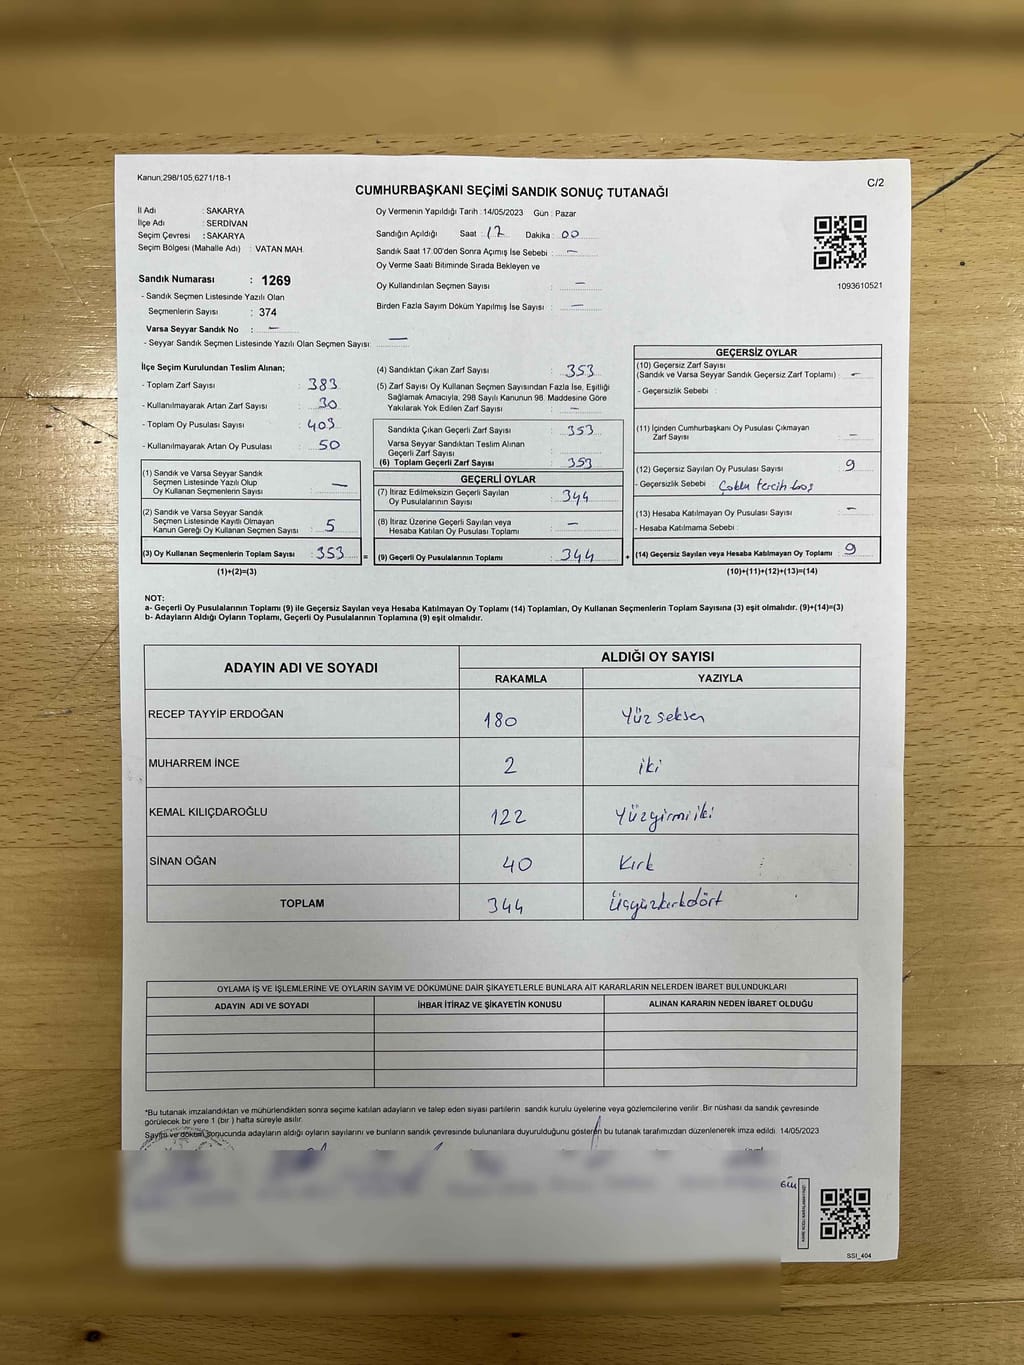 Kanun,298/105,6271/18-1
C/2
CUMHURBAŞKANI SEÇİMİ SANDIK SONUÇ TUTANAĞI
İl Adı : SAKARYA
İlçe Adı : SERDİVAN
Seçim Çevresi : SAKARYA
Seçim Bölgesi (Mahalle Adı) : VATAN MAH.
Sandık Numarası : 1269
- Sandık Seçmen Listesinde Yazılı Olan
Seçmenlerin Sayısı : 374
Varsa Seyyar Sandık No : —
- Seyyar Sandık Seçmen Listesinde Yazılı Olan Seçmen Sayısı: —
Oy Vermenin Yapıldığı Tarih :14/05/2023 Gün : Pazar
Sandığın Açıldığı Saat : 17 Dakika : 00
Sandık Saat 17.00'den Sonra Açımış İse Sebebi : —
Oy Verme Saati Bitiminde Sırada Bekleyen ve
Oy Kullandırılan Seçmen Sayısı : —
Birden Fazla Sayım Döküm Yapılmış İse Sayısı : —
1093610521
İlçe Seçim Kurulundan Teslim Alınan;
- Toplam Zarf Sayısı : 383
- Kullanılmayarak Artan Zarf Sayısı : 30
- Toplam Oy Pusulası Sayısı : 403
- Kullanılmayarak Artan Oy Pusulası : 50
(1) Sandık ve Varsa Seyyar Sandık
Seçmen Listesinde Yazılı Olup
Oy Kullanan Seçmenlerin Sayısı : —
(2) Sandık ve Varsa Seyyar Sandık
Seçmen Listesinde Kayıtlı Olmayan
Kanun Gereği Oy Kullanan Seçmen Sayısı : 5
(3) Oy Kullanan Seçmenlerin Toplam Sayısı : 353 =
(1)+(2)=(3)
(4) Sandıktan Çıkan Zarf Sayısı : 353
(5) Zarf Sayısı Oy Kullanan Seçmen Sayısından Fazla İse, Eşitliği
Sağlamak Amacıyla, 298 Sayılı Kanunun 98. Maddesine Göre
Yakılarak Yok Edilen Zarf Sayısı : —
Sandıkta Çıkan Geçerli Zarf Sayısı : 353
Varsa Seyyar Sandıktan Teslim Alınan
Geçerli Zarf Sayısı :
(6) Toplam Geçerli Zarf Sayısı : 353
GEÇERLİ OYLAR
(7) İtiraz Edilmeksizin Geçerli Sayılan
Oy Pusulalarının Sayısı : 344
(8) İtiraz Üzerine Geçerli Sayılan veya
Hesaba Katılan Oy Pusulası Toplamı : —
(9) Geçerli Oy Pusulalarının Toplamı : 344 +
GEÇERSİZ OYLAR
(10) Geçersiz Zarf Sayısı
(Sandık ve Varsa Seyyar Sandık Geçersiz Zarf Toplamı) : —
- Geçersizlik Sebebi :
(11) İçinden Cumhurbaşkanı Oy Pusulası Çıkmayan
Zarf Sayısı : —
(12) Geçersiz Sayılan Oy Pusulası Sayısı : 9
- Geçersizlik Sebebi : Çoklu tercih boş
(13) Hesaba Katılmayan Oy Pusulası Sayısı : —
- Hesaba Katılmama Sebebi :
(14) Geçersiz Sayılan veya Hesaba Katılmayan Oy Toplamı : 9
(10)+(11)+(12)+(13)=(14)
NOT:
a- Geçerli Oy Pusulalarının Toplamı (9) ile Geçersiz Sayılan veya Hesaba Katılmayan Oy Toplamı (14) Toplamları, Oy Kullanan Seçmenlerin Toplam Sayısına (3) eşit olmalıdır. (9)+(14)=(3)
b- Adayların Aldığı Oyların Toplamı, Geçerli Oy Pusulalarının Toplamına (9) eşit olmalıdır.
ADAYIN ADI VE SOYADI
ALDIĞI OY SAYISI
RAKAMLA YAZIYLA
RECEP TAYYİP ERDOĞAN 180 Yüz seksen
MUHARREM İNCE 2 iki
KEMAL KILIÇDAROĞLU 122 Yüzyirmiiki
SİNAN OĞAN 40 Kırk
TOPLAM 344 Üçyüzkırkdört
OYLAMA İŞ VE İŞLEMLERİNE VE OYLARIN SAYIM VE DÖKÜMÜNE DAİR ŞİKAYETLERLE BUNLARA AİT KARARLARIN NELERDEN İBARET BULUNDUKLARI
ADAYIN ADI VE SOYADI İHBAR İTİRAZ VE ŞİKAYETİN KONUSU ALINAN KARARIN NEDEN İBARET OLDUĞU
*Bu tutanak imzalandıktan ve mühürlendikten sonra seçime katılan adayların ve talep eden siyasi partilerin sandık kurulu üyelerine veya gözlemcilerine verilir .Bir nüshası da sandık çevresinde
görülecek bir yere 1 (bir ) hafta süreyle asılır.
Sayım ve döküm sonucunda adayların aldığı oyların sayılarını ve bunların sandık çevresinde bulunanlara duyurulduğunu gösteren bu tutanak tarafımızdan düzenlenerek imza edildi. 14/05/2023
SSI_404